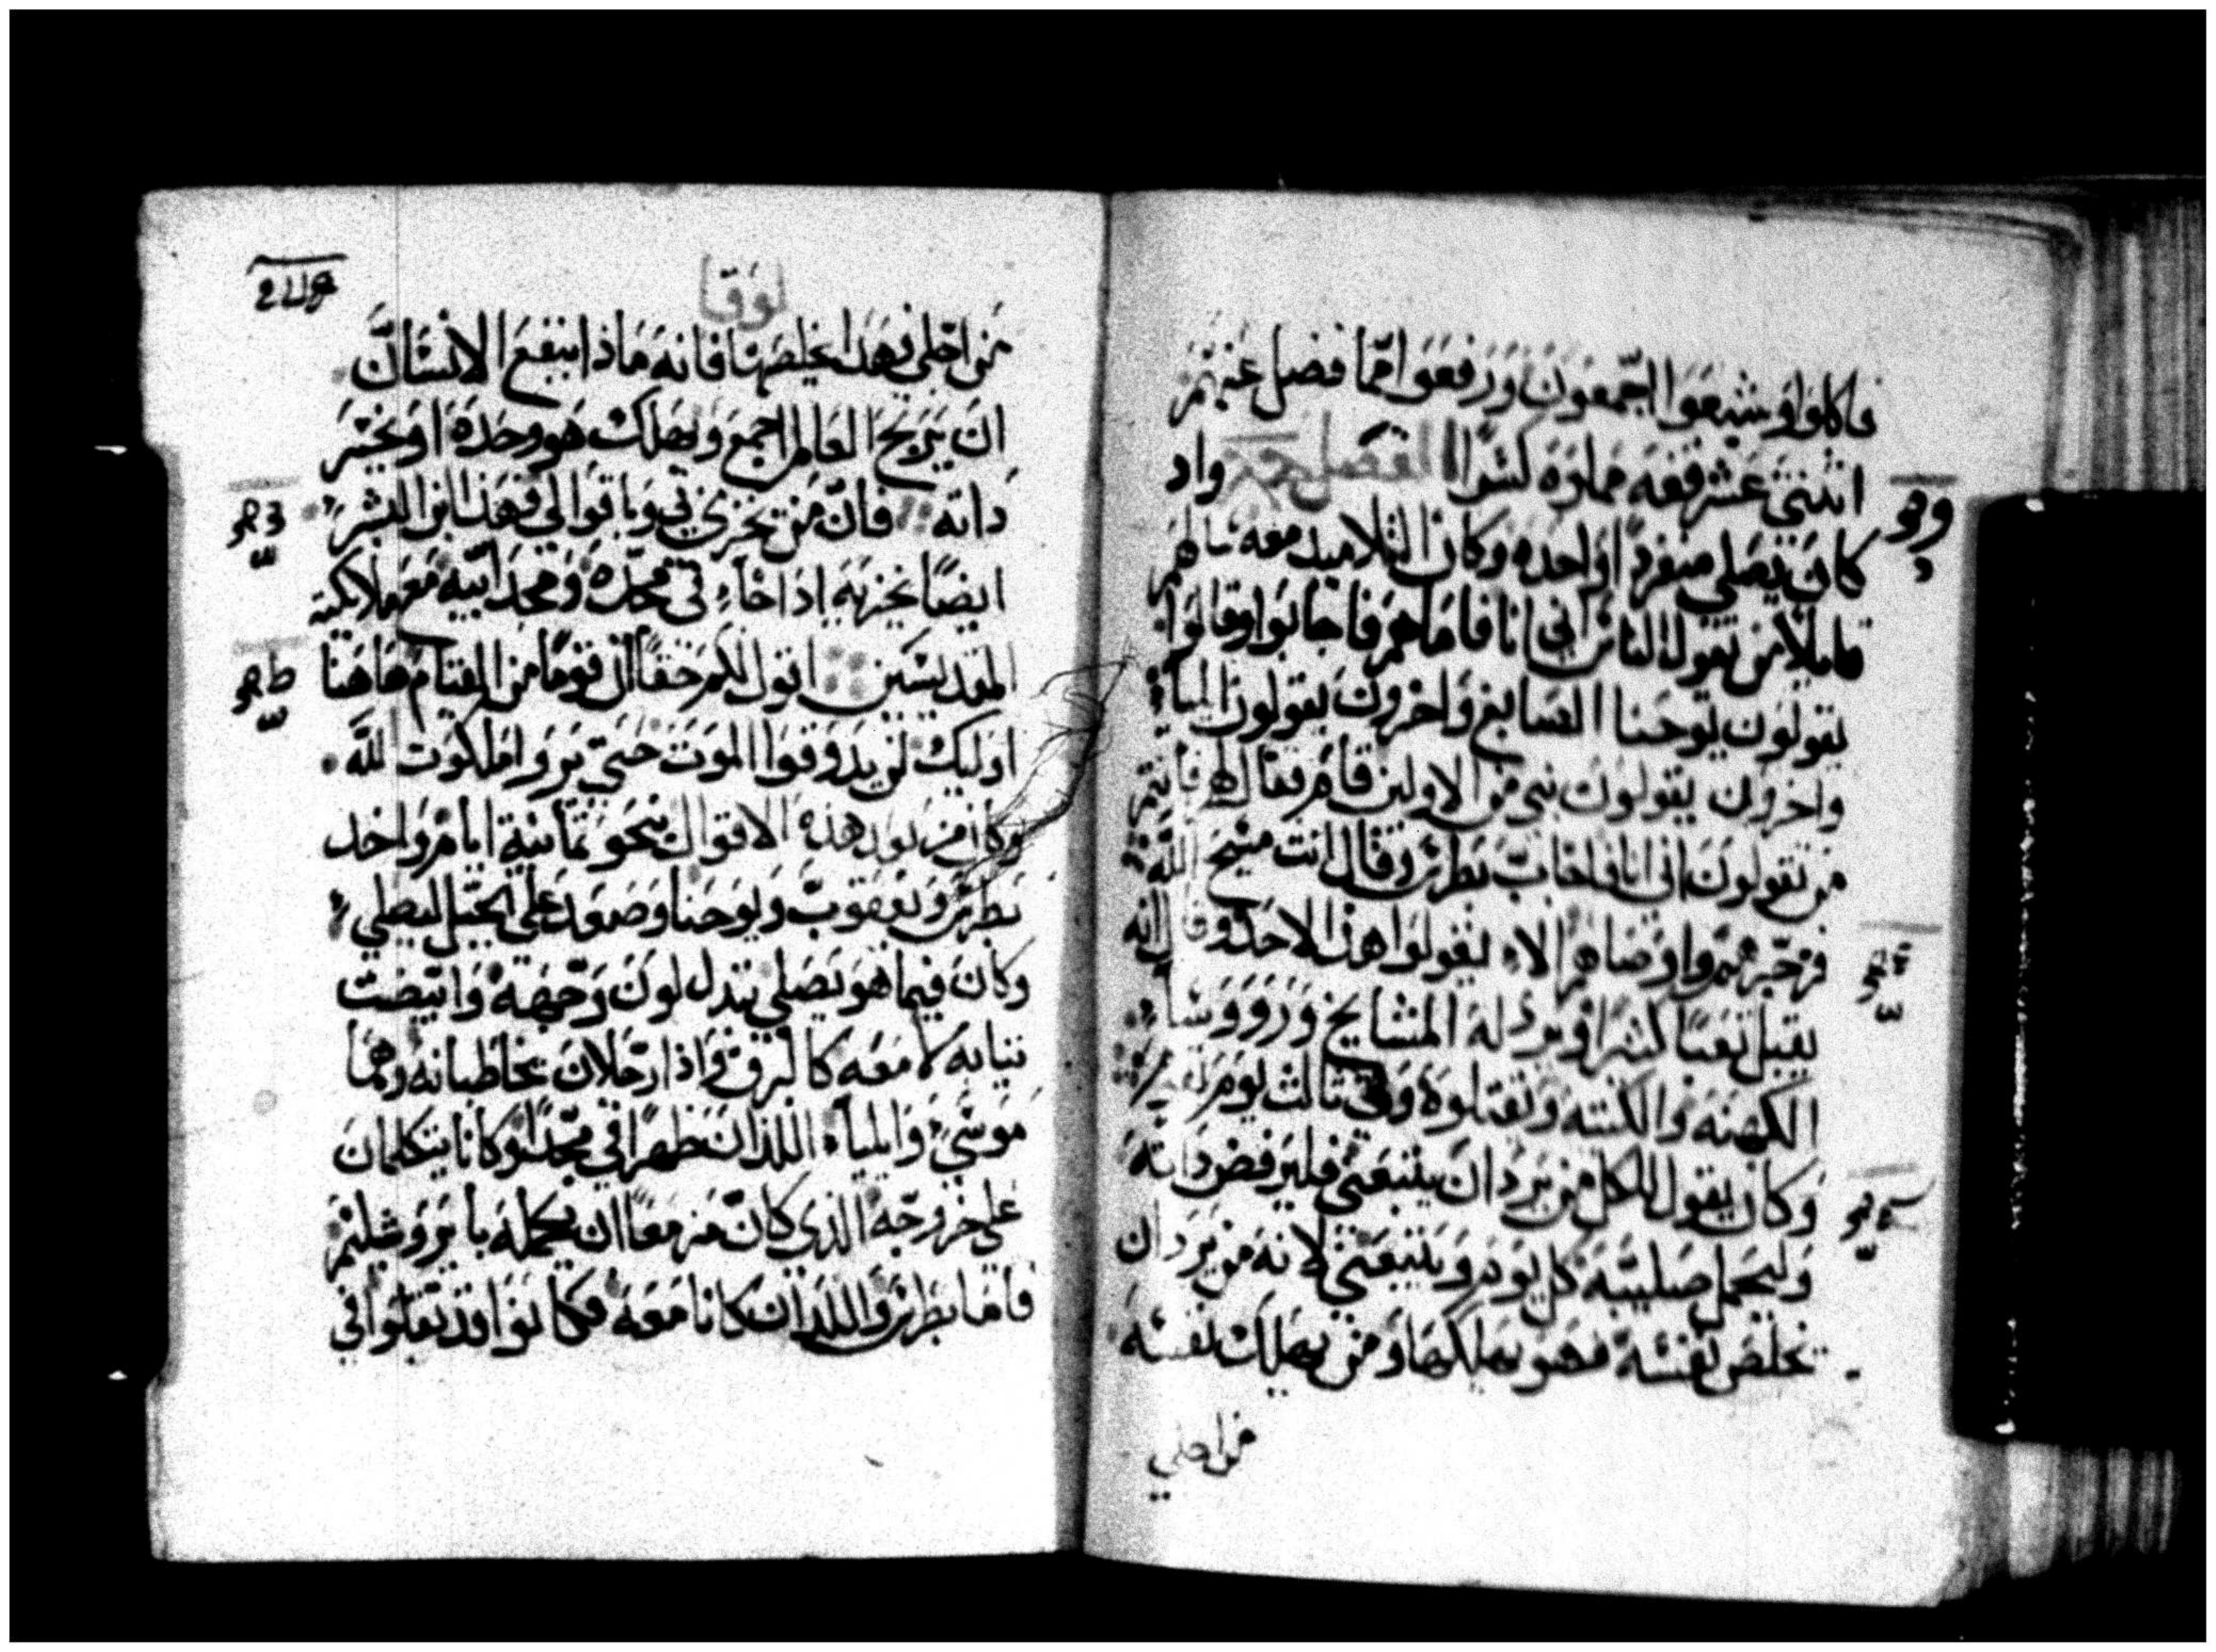 فاكلوا وشبعوا اجمعون ورفعوا مما فضل عنهم
اثنتي عشر قفه مملوه كسرا الفصل واد
كان يصلي منفردا واحده وكان التلاميد معه سالهم
قايلا من تقول الناس اني انا فاما هم فاجابوا وقالوا
يقولون يوحنا الصابغ واخرون يقولون ايليا
واخرون يقولون نبي من الاولين قام فقال لهم فانتم
من تقولون اني انا فاجاب بطرس وقال انت مسيح الله
فزجرهم واوصاهم الا يقولوا هذا لاحد وقال انه
يقبل تعبا كثيرا ويرذله المشايخ وروسا
الكهنه والكتبه ويقتلوه وفي تالت يوم يقوم
وكان يقول للكل من يرد ان يتبعني فليرفض داته
وليحمل صليبه كل يوم ويتبعني لانه من يرد ان
يخلص نفسه فهو يهلكها ومن يهلك نفسه
من اجلي
لوقا
من اجلي فهدا يخلصها فانه ماذا ينتفع الانسان
ان يربح العالم اجمع ويهلك هو وحده او يخسر
داته فان من يخزي بي وباقوالي فهذا ابن البشر
ايضا يخزيه اذا جاء في مجده ومجد ابيه مع ملايكته
المقديسين اقول لكم حقا ان قوما من القيام هاهنا
اوليك لن يدوقوا الموت حتي يروا ملكوت الله
وكان من بعد هذه الاقوال بنحو تمانية ايام واخد
بطرس ويعقوب ويوحنا وصعد علي الجبل ليصلي
وكان فيما هو يصلي تبدل لون وجهه وابيضت
تيابه لامعه كالبرق واذا رجلان يخاطبانه وهما
موسي وايلياء اللذان ظهرا في مجد وكانا يتكلمان
علي خروجه الذي كان مزمعا ان يكمله بايروشليم
فاما بطرس واللذان كانا معه فكانوا قد تقلوا في